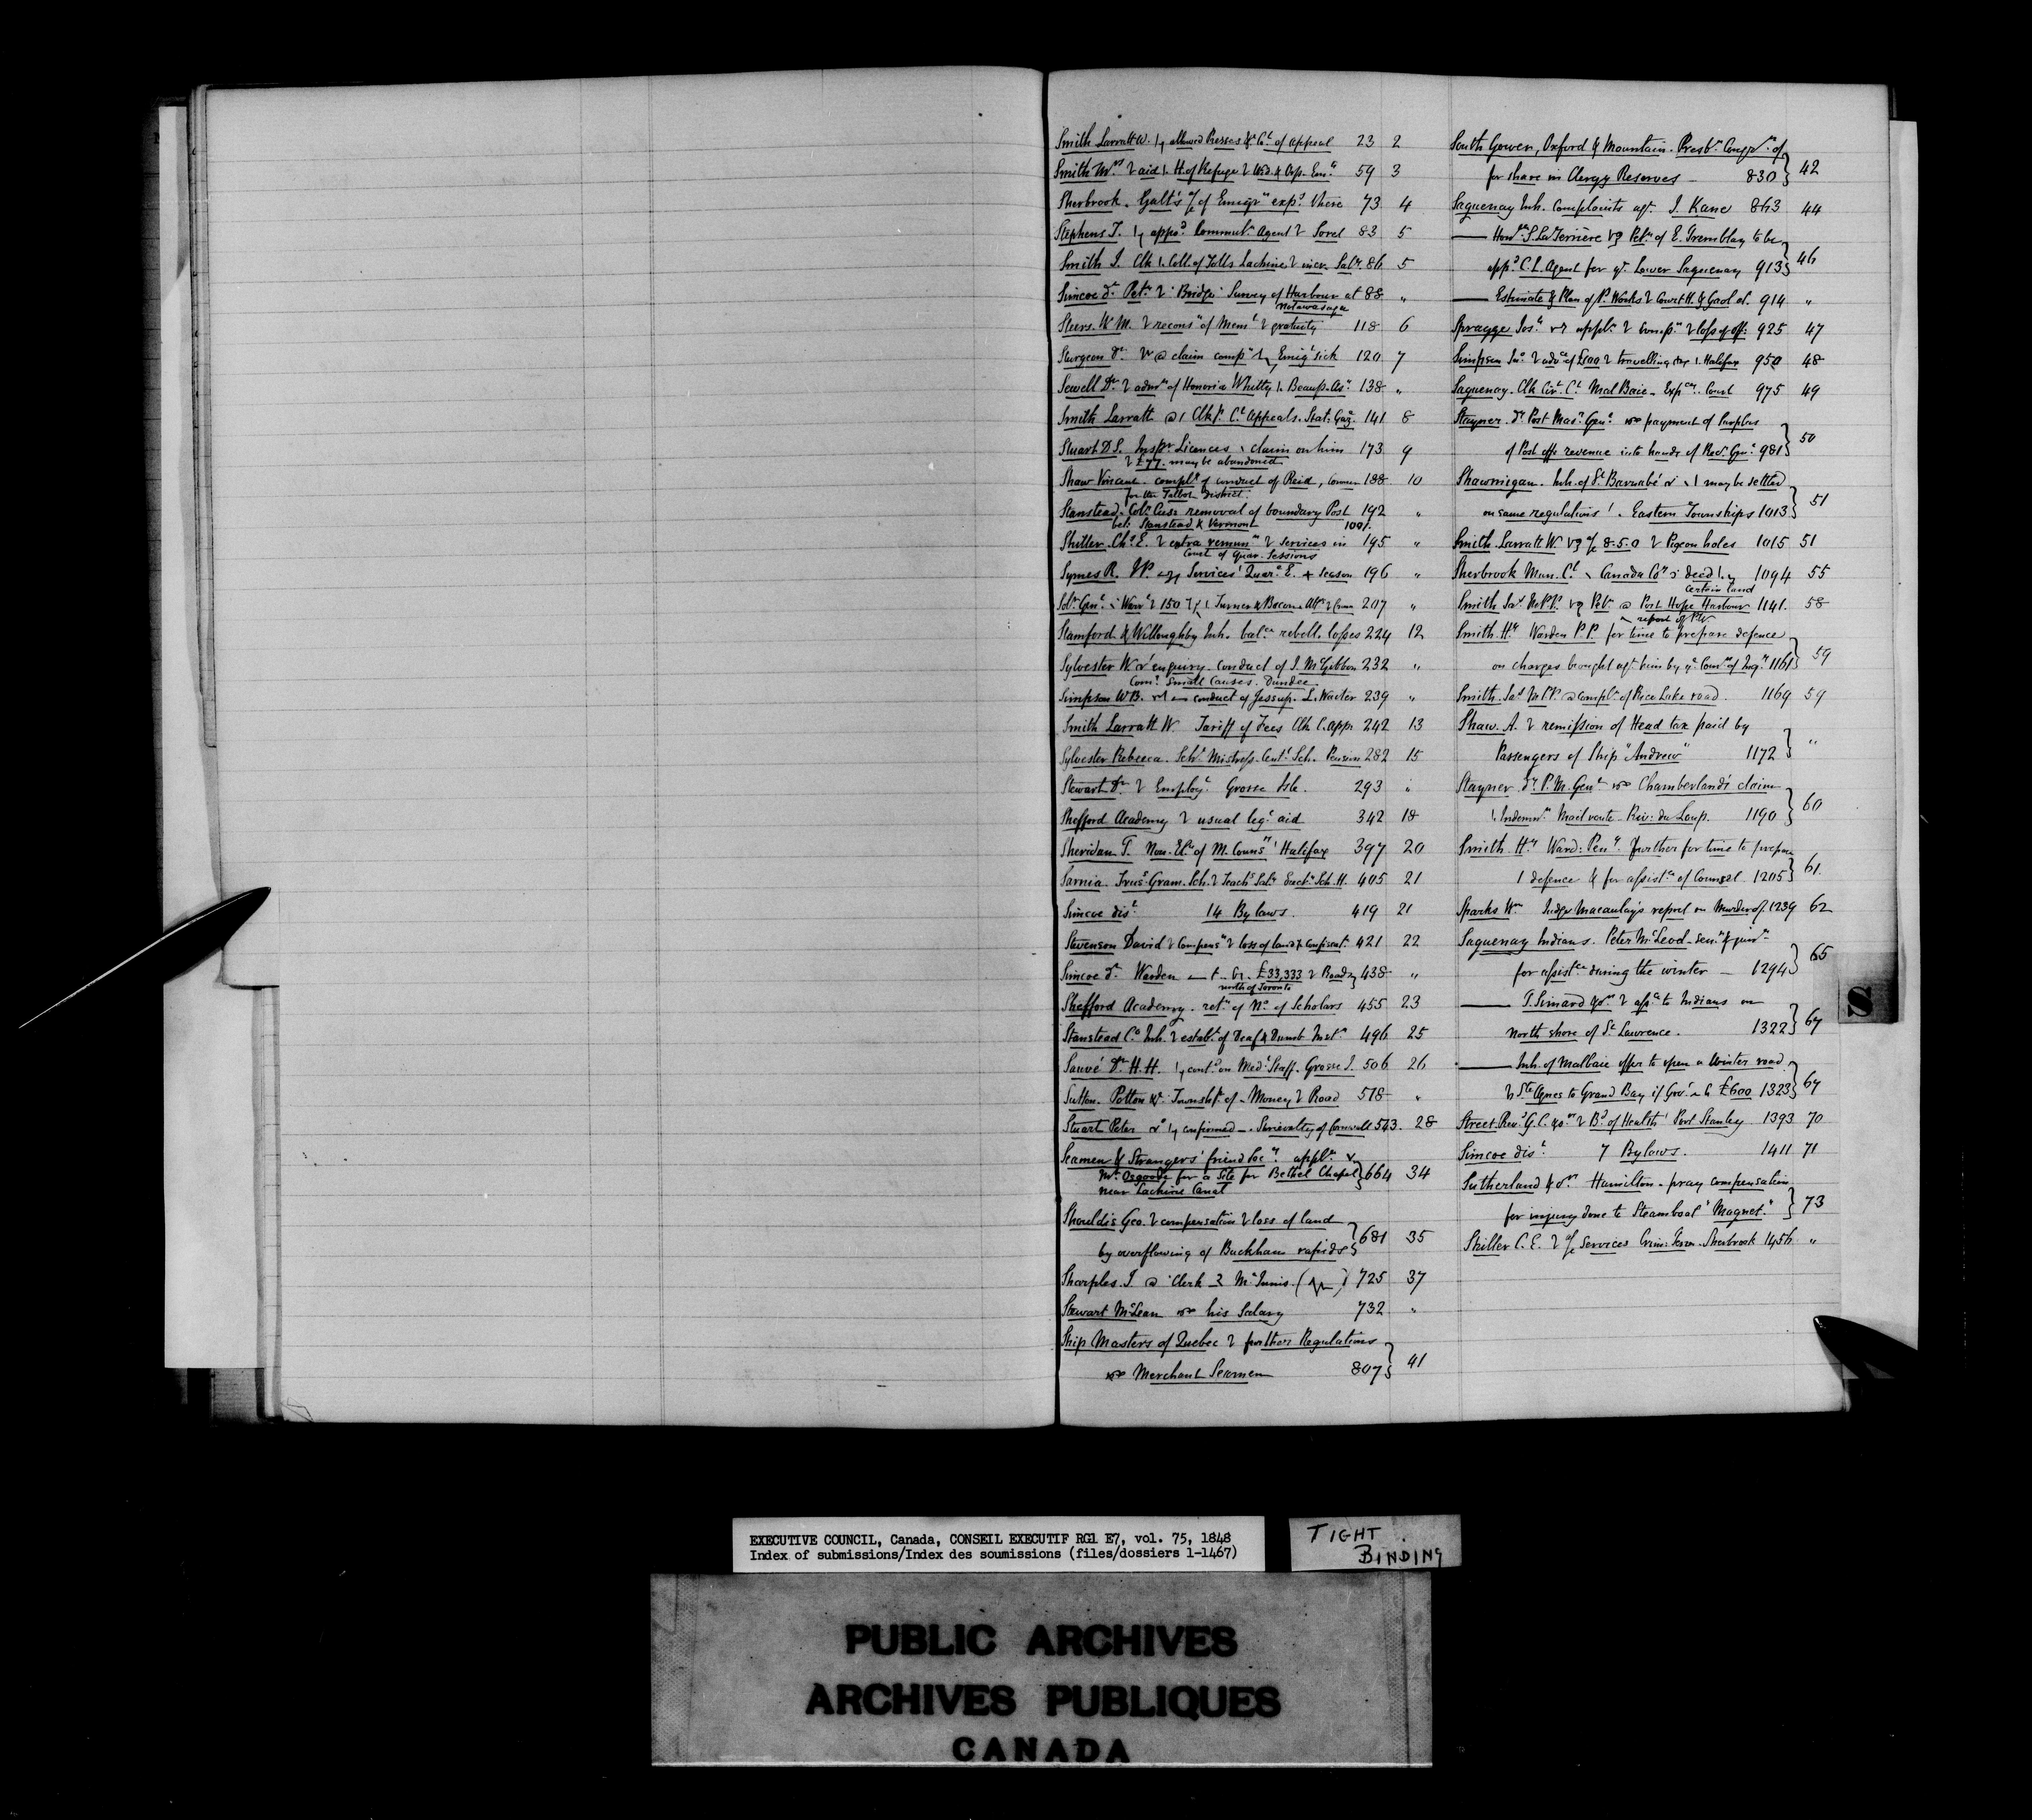 Smith Larratt W. allowed Presses &c Ct. of Appeal 23 2
Smith Mrs aid H. of Refuge & Wid. & Orp. Emts 59 3
Sherbrook. Galt's a/c of Emigrn expd there 73 4
Stephens T. appd Commutn Agent Sorel 83 5
Smith J. Clk Coll. of Tolls Lachine incr. Saly 86 5
Simcoe dt Petn Bridge Survey of Harbour at 88 "
Notawasaga
Steers. W. M. reconsn of Meml gratuity 118 6
Sturgeon Dr. claim compn Emigt sick 120 7
Sewell Dr. admn of Honoria Whitty Beaup. As. 138 "
Smith Larratt Clk Ct. Appeals. Stat. Gaz. 141 8
Stuart D S. Inspr Licences claim on him 173 9
£77. may be abandoned
Shaw Vincent complt of conduct of Reid, Coroner 188 10
for the Talbot District.
Stanstead. Colr Cuss removal of boundary Post 192 "
bet: Stanstead & Vermont 100/.
Shiller. Chs E. extra remunn Services in 195 "
Court of Quar. Sessions
Symes R. JP. Services Quare. E. Season 196 "
Solr Genl Wart 150 Turner & Bacon 207 "
Stamford & Willoughby Inh. balce rebell. losses 224 12
Sylvester W enquiry conduct of J. McGibbon 232 "
Comr Small Causes. Dundee
Simpson W B. conduct of Jessup. L. Waiter 239 "
Smith Larratt W. Tariff of Fees Clk C. Appl 242 13
Sylvester Rebecca. Schl Mistress Cent. Sch. Pension 282 15
Stewart Dr. Employt Grosse Isle. 293 "
Shefford Academy usual leg: aid 342 18
Sheridan T. Non. Eln of M. Councr Halifax 397 20
Sarnia Trus. Gram. Sch. Teachs Saly Erectn Sch. H. 405 21
Simcoe dist 14 Bylaws. 419 21
Stevenson David compensn loss of land confiscatn 421 22
Simcoe dt Warden £33,333 Roads 438 "
north of Toronto
Shefford Academy. retn of No of Scholars 455 23
Stanstead Co Inh. establt of Deaf & Dumb Instn 496 25
Sauvé Dr. H. H. contd on Medl Staff. Grosse I. 506 26
Sutton. Potton &c Townshp of Money Road 518 "
Stuart Peter confirmed Shrievalty of Cornwall 543. 28
Seamen & Strangers' friend Socy appln
Mr. Osgoode for a Site for Bethel Chapel } 664 34
near Lachine Canal
Shouldis Geo. compensation loss of land
by overflowing of Buckham rapids } 681 35
Sharples. J. Clerk McInnis 725 37
Stewart McLean his Salary 732 "
Ship Masters of Quebec further Regulations
Merchant Seamen 807 } 41
South Gower, Oxford & Mountain. Presbn Congn of
for share in Clergy Reserves 830 } 42
Saguenay Inh. Complaints agt. J. Kane 863 44
Honble S. LaTerrière Petn of E. Tremblay to be
appd C. L. Agent for Lower Saguenay 913 } 46
Estimate & Plan of P. Works Court H. & Gaol at. 914 "
Spragge Jos. appln compn loss of off: 925 47
Simpson Jno advce of £100 travelling exp Halifax 950 48
Saguenay. Clk Cirt Ct Mal Baie. Expces Court 975 49
Stayner dy Post Masr Genl payment of Surplus
of Post offe revenue into hands of Recr Genl 981 } 50
Shawinigan. Inh. of St Barnabé may be settled
on same regulations Eastern Townships 1013 } 51
Smith Larratt W. a/c 8.5.0 Pigeon holes 1015 51
Sherbrook Mun. Cl Canada Coy deed 1094 55
certain land
Smith Jas MPP. Petn Port Hope Harbour 1141. 58
report of PW
Smith. Hy Warden P. P. for time to prepare defence
on charges brought agt him by Comrs of Inqy 1161 } 59
Smith. Jas MPP. complt of Rice Lake road. 1169 59
Shaw. A. remission of Head tax paid by
Passengers of Ship "Andrew" 1172 } "
Stayner. dy P. M. Genl Chamberland's claim
Indemny Mail route. Riv: du Loup. 1190 } 60
Smith. Hy Ward: Peny further for time to prepare
defence & for assistce of Counsel 1205 } 61.
Sparks Wm Judge Macaulay's report on Murder of. 1239 62
Saguenay Indians. Peter McLeod senr & junr
for assistce during the winter 1294 } 65
T. Simard & ors assce to Indians on
north shore of St Lawrence. 1322 } 67
Inh. of Malbaie offer to open a Winter road
Ste Agnes to Grand Bay if Govt £600 1323 } 67
Street. Revd G. C. & ors Bd of Health Port Stanley 1393 70
Simcoe dist 7 Bylaws. 1411 71
Sutherland & ors Hamilton. pray compensation
for injury done to Steamboat "Magnet." } 73
Shiller C. E. a/c Services Crim. Term. Sherbrook 1456 "
S
EXECUTIVE COUNCIL, Canada, CONSEIL EXECUTIF RG1 E7, vol. 75, 1848
Index of submissions/Index des soumissions (files/dossiers 1-1467)
TIGHT
BINDING
PUBLIC ARCHIVES
ARCHIVES PUBLIQUES
CANADA